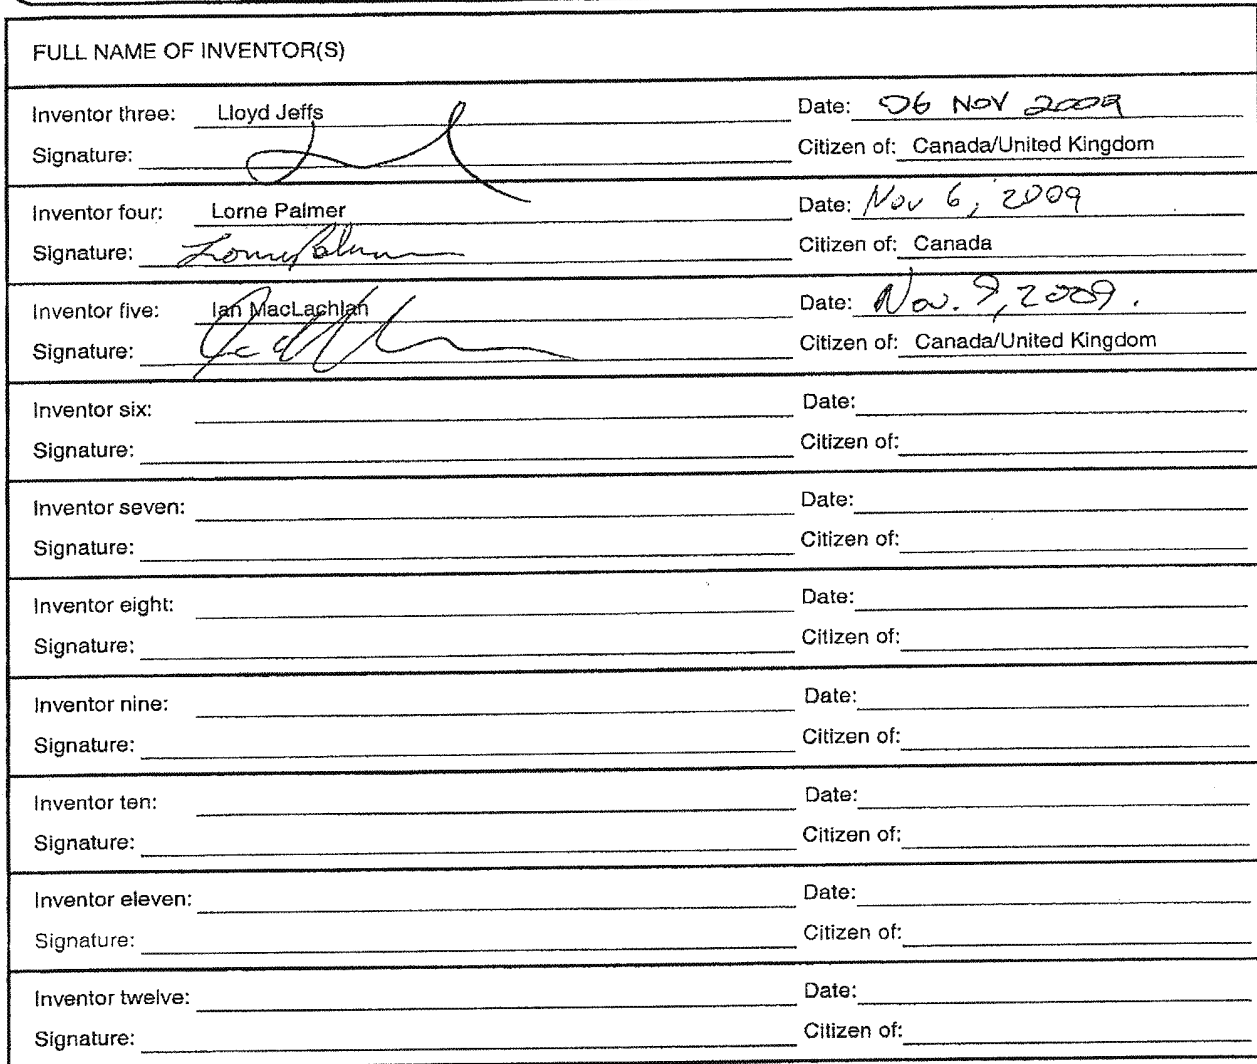 FULL NAME OF INVENTOR(S)
Inventor three: Lloyd Jeffs Date: 06 NOV 2009
Signature: Citizen of: Canada/United Kingdom
Inventor four: Lorne Palmer Date: Nov 6, 2009
Signature: Lorne Palmer Citizen of: Canada
Inventor five: Ian MacLachlan Date: Nov. 9, 2009.
Signature: Citizen of: Canada/United Kingdom
Inventor six: Date:
Signature: Citizen of:
Inventor seven: Date:
Signature: Citizen of:
Inventor eight: Date:
Signature: Citizen of:
Inventor nine: Date:
Signature: Citizen of:
Inventor ten: Date:
Signature: Citizen of:
Inventor eleven: Date:
Signature: Citizen of:
Inventor twelve: Date:
Signature: Citizen of: